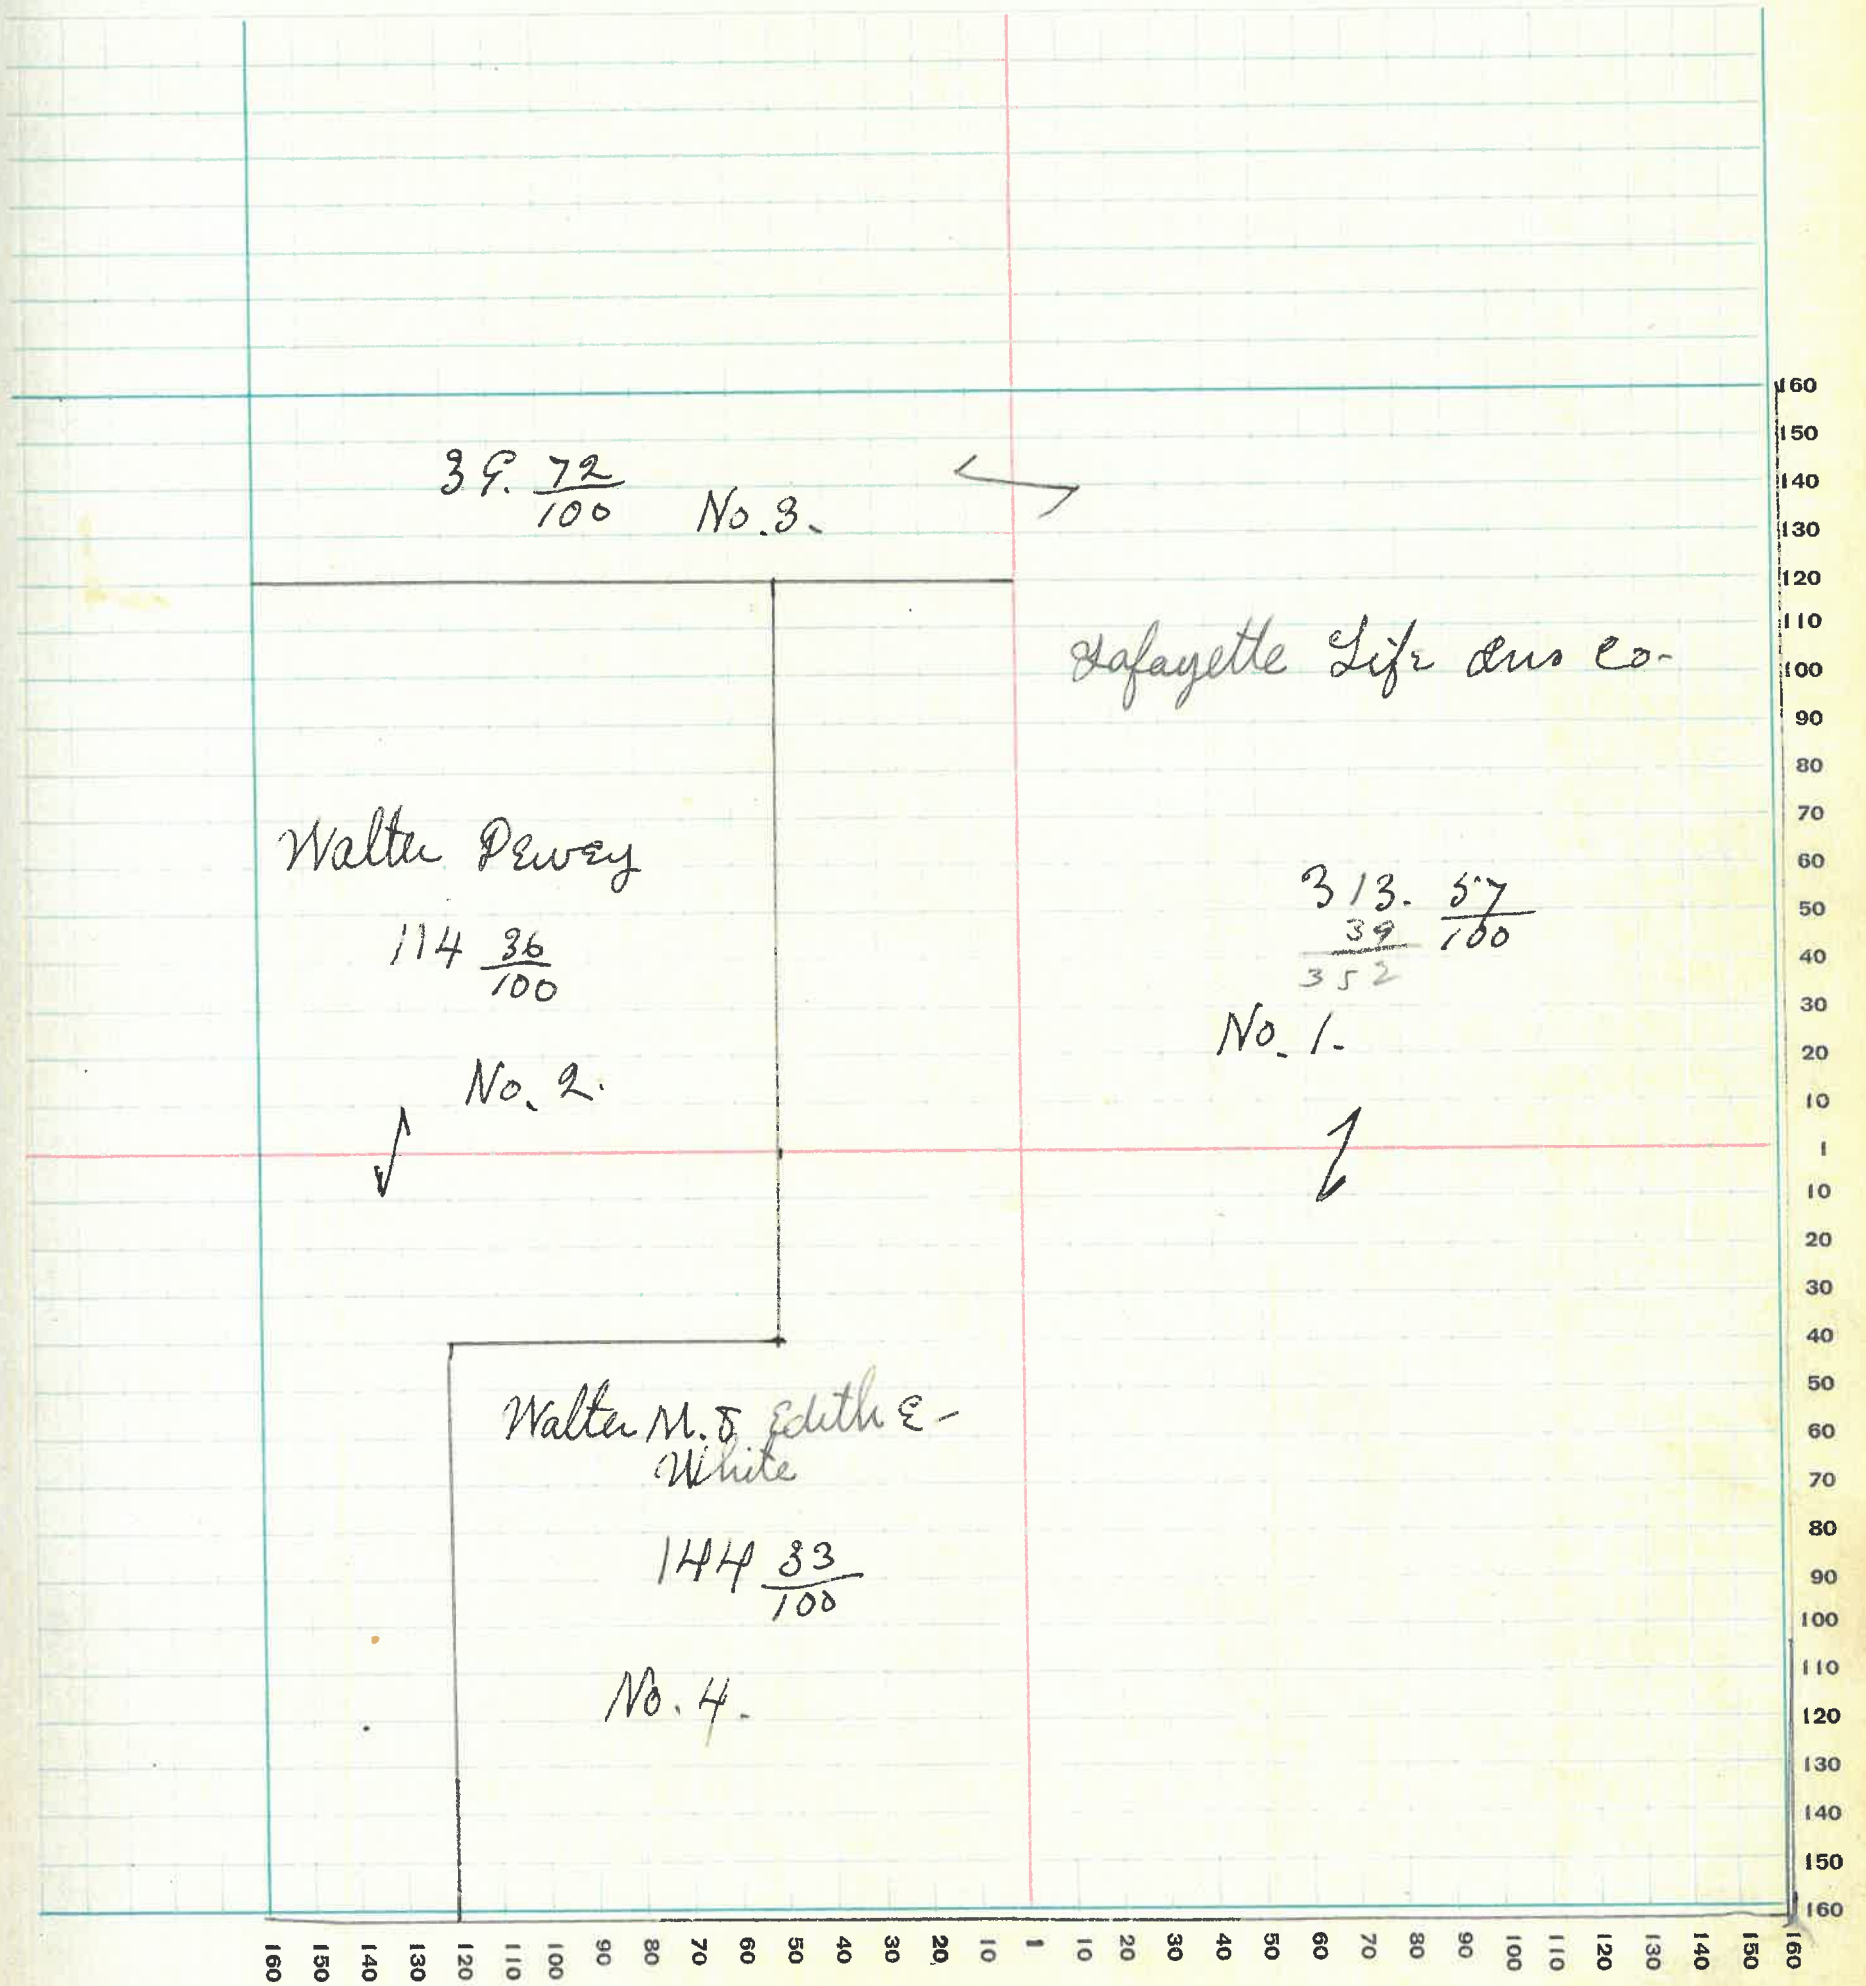 39. 72/100 No. 3.
Lafayette Life Ins Co-
Walter Dewey
114 36/100
No. 2.
313. 57/100
39
352
No. 1.
Walter M. & Edith E-
White
144 33/100
No. 4.
160
150
140
130
120
110
100
90
80
70
60
50
40
30
20
10
1
10
20
30
40
50
60
70
80
90
100
110
120
130
140
150
160
160 150 140 130 120 110 100 90 80 70 60 50 40 30 20 10 1 10 20 30 40 50 60 70 80 90 100 110 120 130 140 150 160